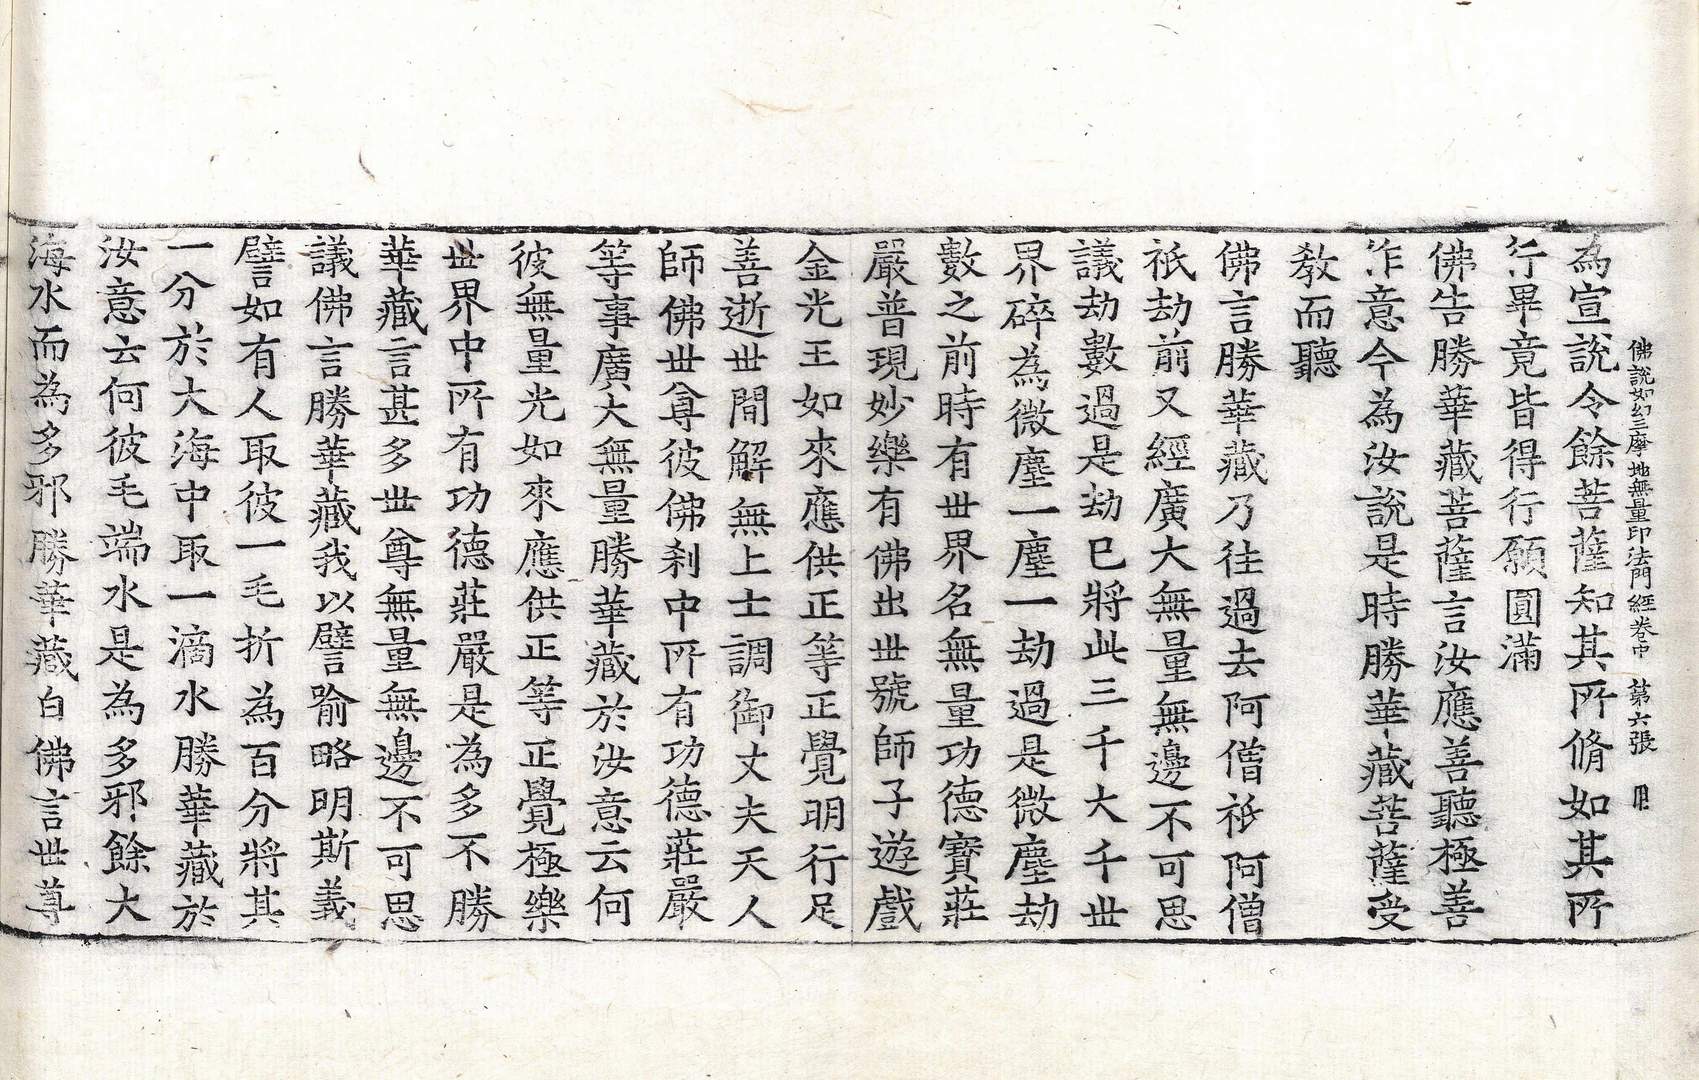 佛說如幻三摩地無量印法門經卷中 第六張 用
為宣說令餘菩薩知其所脩如其所
行畢竟皆得行願圓滿
佛告勝華藏菩薩言汝應善聽極善
作意今為汝說是時勝華藏菩薩受
教而聽
佛言勝華藏乃往過去阿僧祇阿僧
祇劫前又經廣大無量無邊不可思
議劫數過是劫已將此三千大千世
界碎為微塵一塵一劫過是微塵劫
數之前時有世界名無量功德寶莊
嚴普現妙樂有佛出世號師子遊戲
金光王如來應供正等正覺明行足
善逝世間解無上士調御丈夫天人
師佛世尊彼佛剎中所有功德莊嚴
等事廣大無量勝華藏於汝意云何
彼無量光如來應供正等正覺極樂
世界中所有功德莊嚴是為多不勝
華藏言甚多世尊無量無邊不可思
議佛言勝華藏我以譬喻略明斯義
譬如有人取彼一毛折為百分將其
一分於大海中取一滴水勝華藏於
汝意云何彼毛端水是為多邪餘大
海水而為多邪勝華藏白佛言世尊